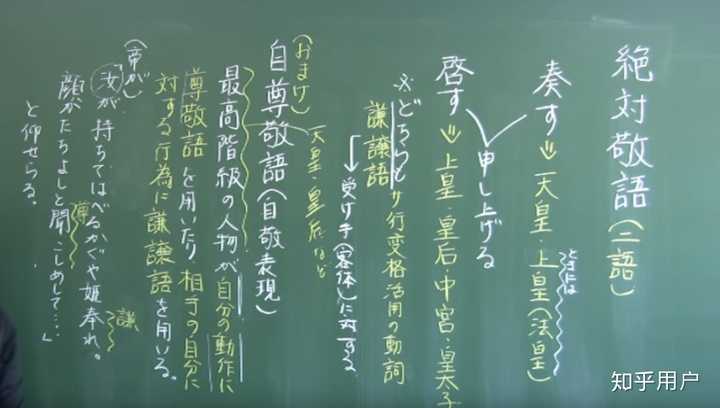 絶対敬語(二語)
ときには
奏す⇒天皇・上皇(法皇)
申し上げる
啓す⇒上皇・皇后・中宮・皇太子
※どちらもサ行変格活用の動詞
謙譲語
→受け手(客体)に対する
天皇・皇后など
(おまけ)
自尊敬語(自敬表現)
最高階級の人物が自分の動作に
尊敬語を用いたり相手の自分に
対する行為に謙譲語を用いる。
(帝が)
謙
「汝が持ちてはべるかぐや姫奉れ。
尊
顔かたちよしと聞こしめして…。」
と仰せらる。
知乎用户